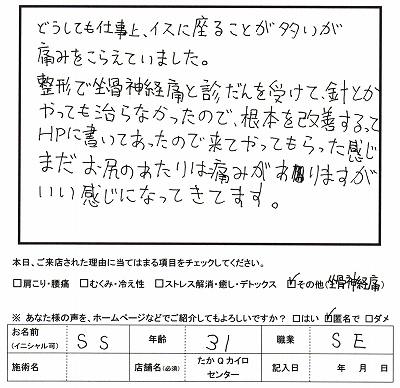 どうしても仕事上、イスに座ることが多いが
痛みをこらえていました。
整形で坐骨神経痛と診だんを受けて、針とか
やっても治らなかったので、根本を改善するって
HPに書いてあったので来てやってもらった感じ
まだお尻のあたりは痛みがありますが
いい感じになってきてます。
本日、ご来店された理由に当てはまる項目をチェックしてください。
□肩こり・腰痛 □むくみ・冷え性 □ストレス解消・癒し・デトックス ☑その他(坐骨神経痛)
※ あなた様の声を、ホームページなどでご紹介してもよろしいですか? □はい ☑匿名で □ダメ
お名前 (イニシャル可) SS 年齢 31 職業 SE
施術名 店舗名(必須) たかQカイロセンター 記入日 年 月 日